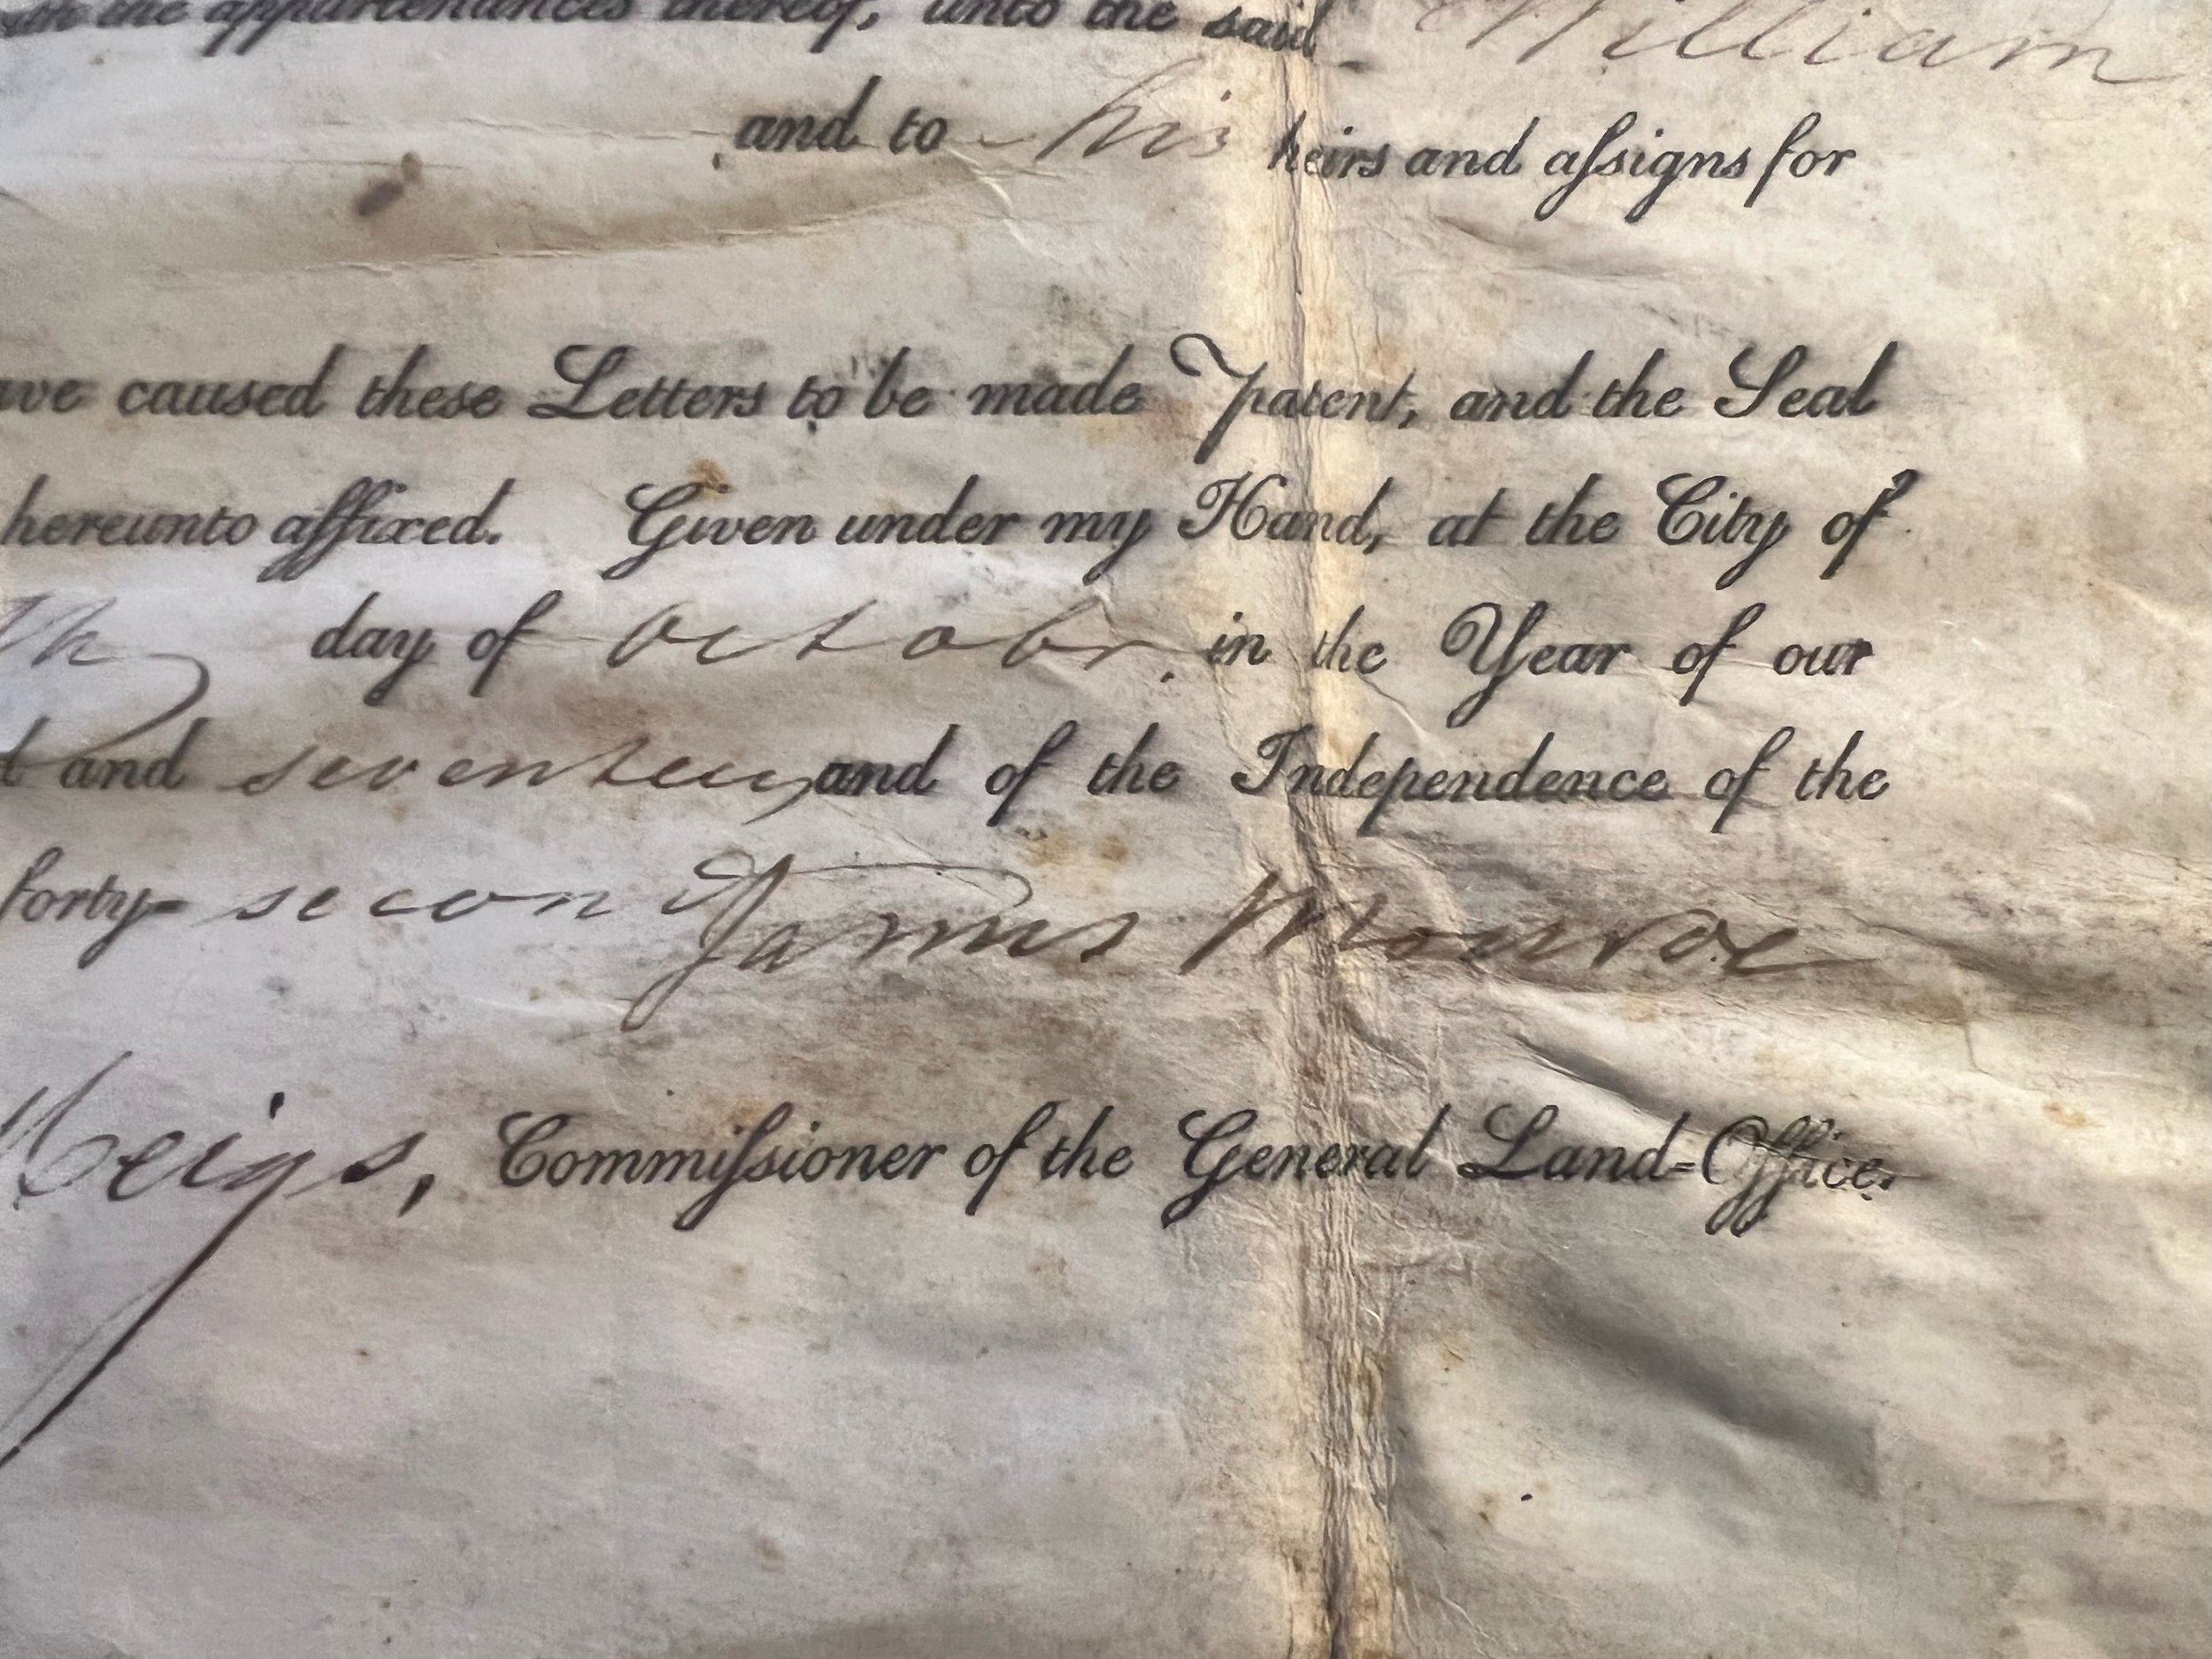 the appurtenances thereof, unto the said William
and to his heirs and aſsigns for
ave caused these Letters to be made Patent, and the Seal
hereunto affixed. Given under my Hand, at the City of
th day of Octobr. in the Year of our
d and seventeen and of the Independence of the
forty=second James Monroe
Meigs, Commiſsioner of the General Land=Office.